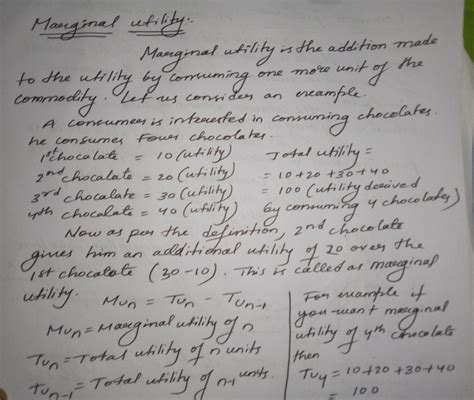 Marginal utility:.
Marginal utility is the addition made
to the utility by consuming one more unit of the
commodity. Let us consider an example.
A consumer is interested in consuming chocolates.
he consumes Four chocolates.
1st chocolate = 10 (utility)
2nd chocolate = 20 (utility)
3rd chocolate = 30 (utility)
4th chocolate = 40 (utility)
Total utility =
= 10 + 20 + 30 + 40
= 100 (utility derived
by consuming 4 chocolates)
Now as per the definition, 2nd chocolate
gives him an additional utility of 20 over the
1st chocolate (30-10). This is called as marginal
utility. MUn = TUn - TUn-1
MUn = Marginal utility of n
TUn = Total utility of n units
TUn-1 = Total utility of n-1 units.
For example if
you want marginal
utility of 4th chocolate
then
TU4 = 10+20+30+40
= 100